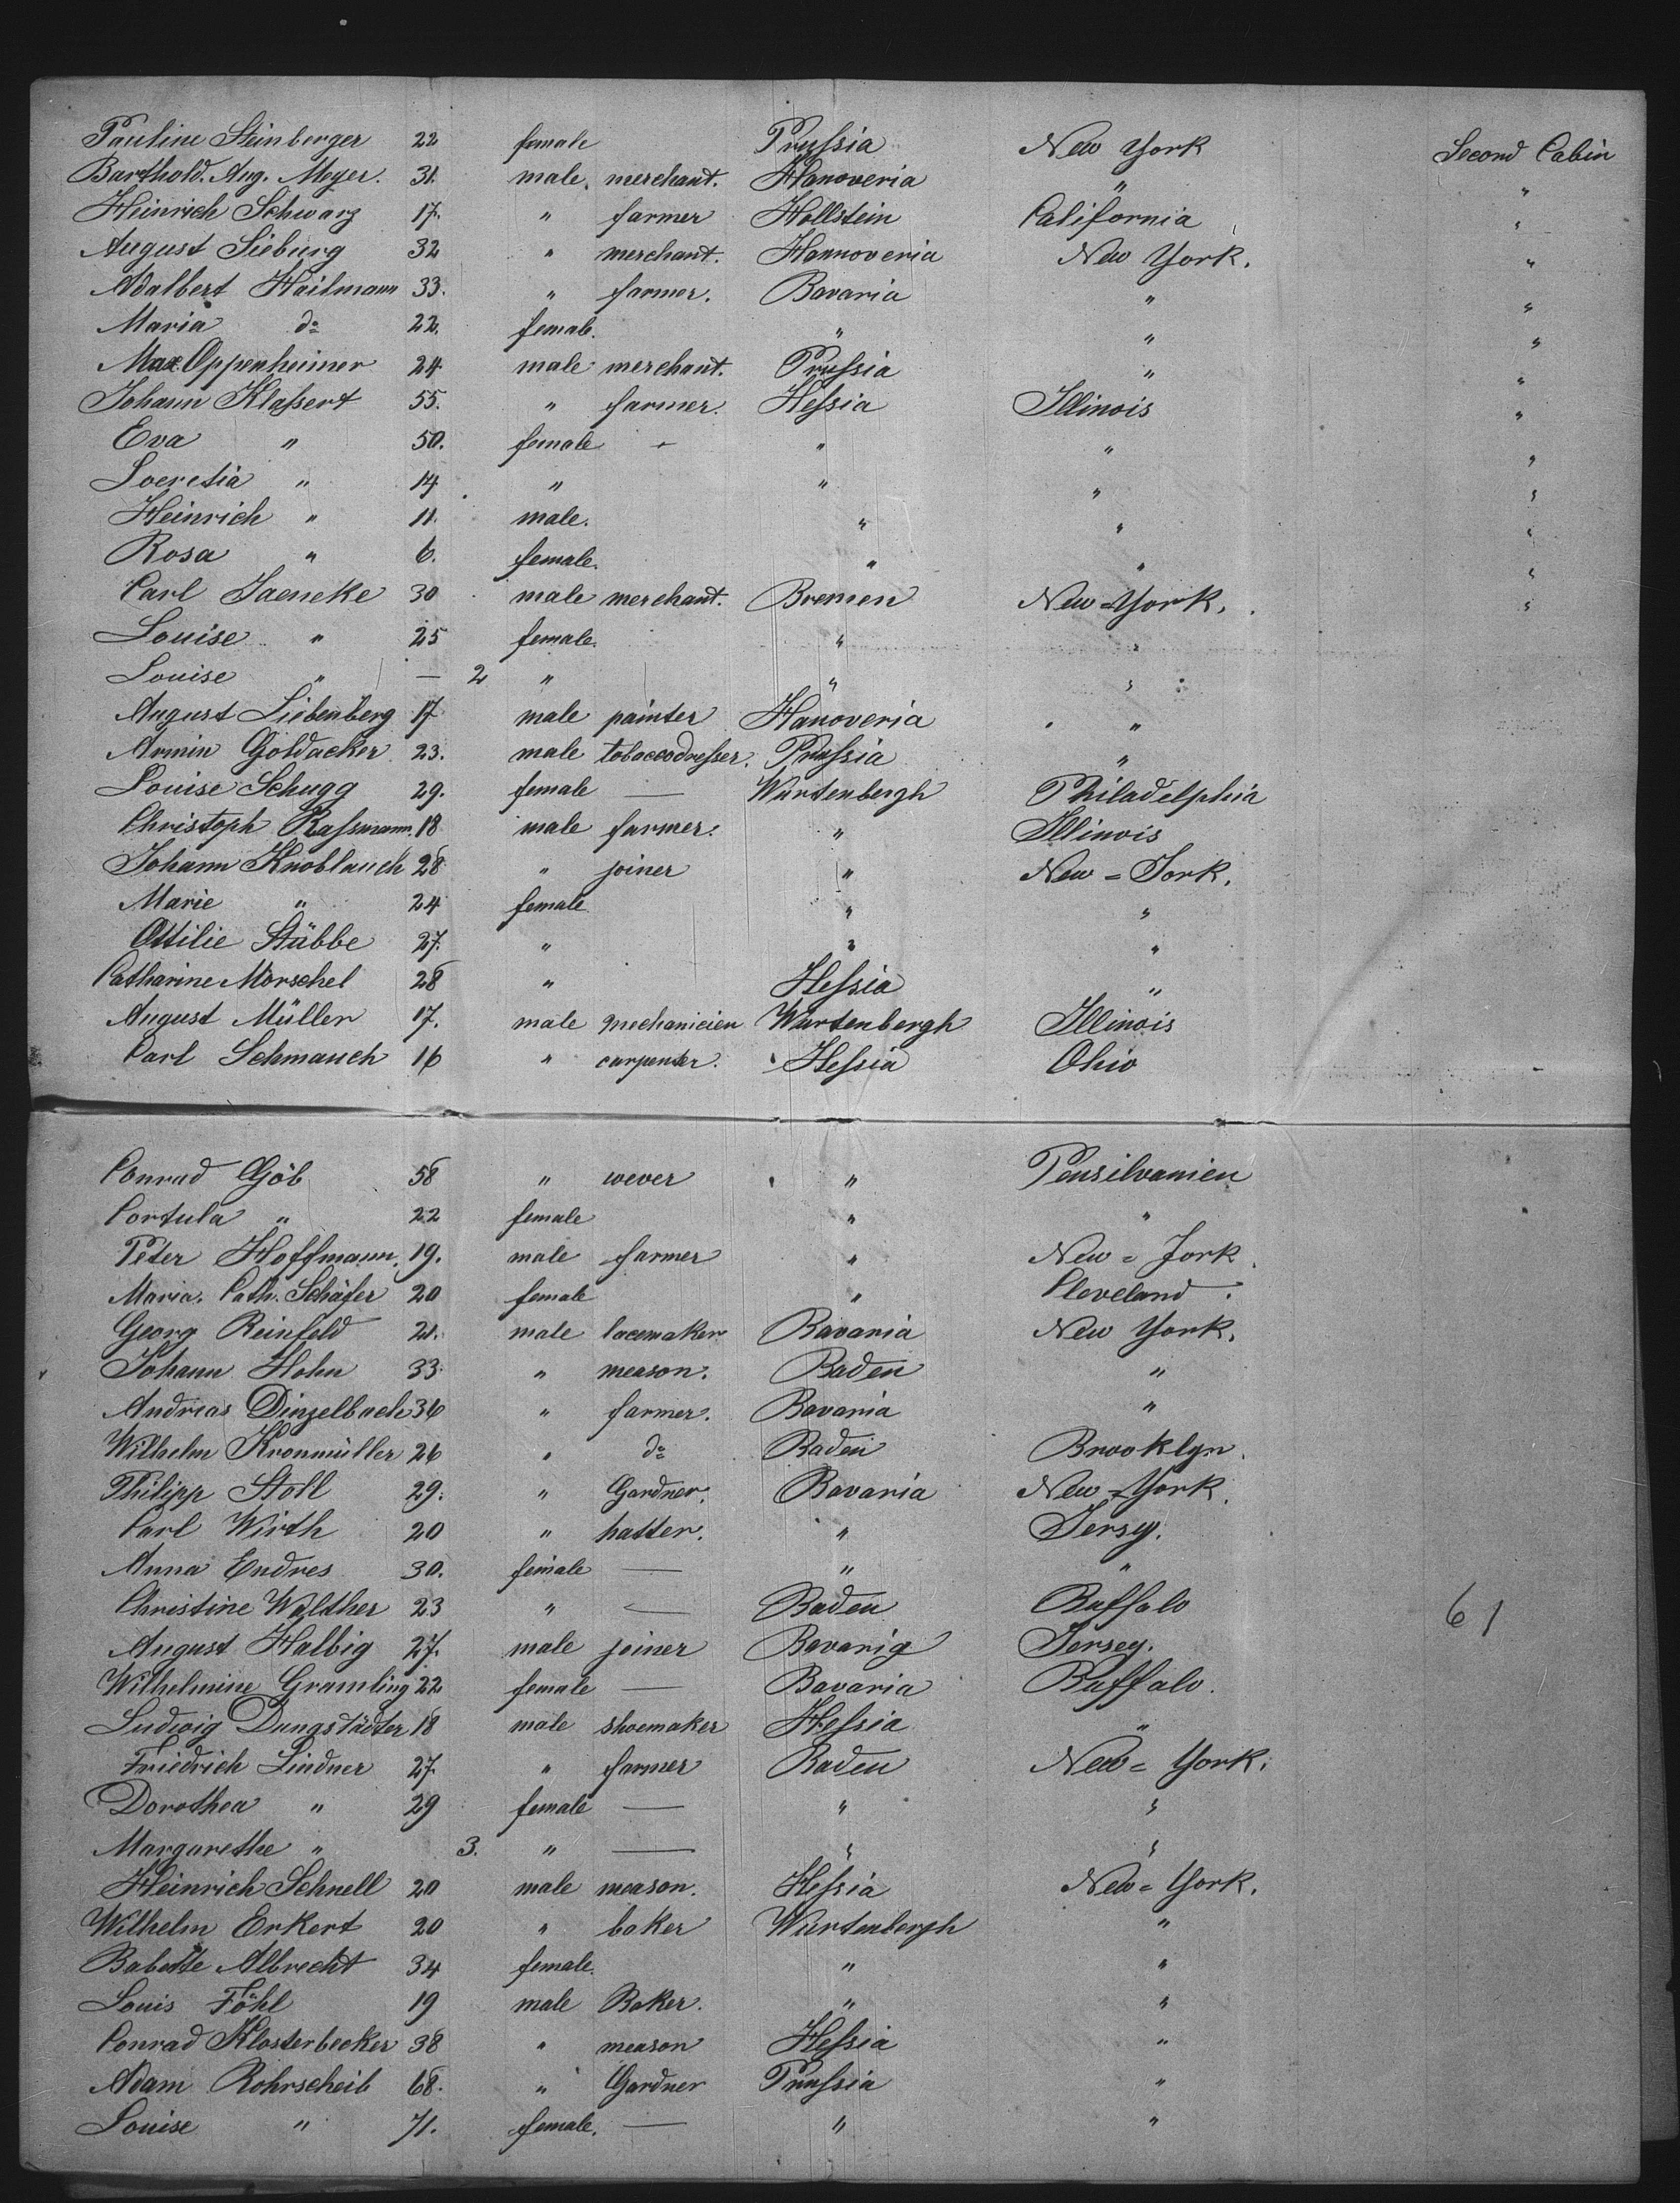 Pauline Steinberger 22 female Prussia New York Second Cabin
Barthold. Aug. Meyer. 31. male. merchant. Hanoveria " "
Heinrich Schwarz 17. " farmer Hollstein California "
August Sieburg 32 " merchant. Hannoveria New York. "
Adalbert Hailmann 33. " farmer. Bavaria " "
Maria do 22. female. " " "
Max Oppenheimer 24. male merchant. Prussia " "
Johann Klassert 55. " farmer. Hessia Illinois "
Eva " 50. female - " " "
Loeretia " 14 " " " "
Heinrich " 11. male. " " "
Rosa " 6. female. " " "
Carl Jaeneke 30 male merchant. Bremen New=York. "
Louise " 25 female. " "
Louise " — 2 " " "
August Liebenberg 17 male painter Hanoveria "
Armin Goldacker 23. male tobaccodresser. Prussia "
Louise Schugg 29. female — Wurtenbergh Philadelphia
Christoph Rassmann 18 male farmer. " Illinois
Johann Knoblauch 28 " joiner " New=York.
Marie " 24 female " "
Ottilie Stübbe 27. " " "
Catharine Morschel 28 " Hessia "
August Müller 17. male mechanicien Wurtenbergh Illinois
Carl Schmauch 16 " carpenter. Hessia Ohio
Conrad Göb 58 " wever " Pensilvanien
Cortula " 22 female " "
Peter Hoffmann. 19. male farmer " New=York.
Maria. Cath. Schäfer 20 female " Cleveland.
Georg Reinfeld 21. male lacemaker Bavaria New York.
Johann Hohn 33. " meason. Baden "
Andreas Dinzelbach 36 " farmer. Bavaria "
Wilhelm Kronmüller 26 " do Baden Brooklyn.
Philipp Stoll 29. " Gardner. Bavaria New=York.
Carl Wirth 20 " hatter. " Jersy.
Anna Endres 30. female — " "
Christine Walther 23 " — Baden Buffalo 61
August Halbig 27. male joiner Bavaria Jersey.
Wilhelmine Gramling 22 female — Bavaria Buffalo.
Ludwig Dungstädter 18 male shoemaker Hessia "
Friedrich Lindner 27. " farmer Baden New=York.
Dorothea " 29 female — " "
Margarethe " 3. " — " "
Heinrich Schnell 20 male meason. Hessia New=York.
Wilhelm Erkert 20 " baker Wurtenbergh "
Babette Albrecht 34 female. " "
Louis Föhl 19 male Baker. " "
Conrad Klosterbecker 38 " meason Hessia "
Adam Rohrscheib 68. " Gardner Prussia "
Louise " 71. female. — " "